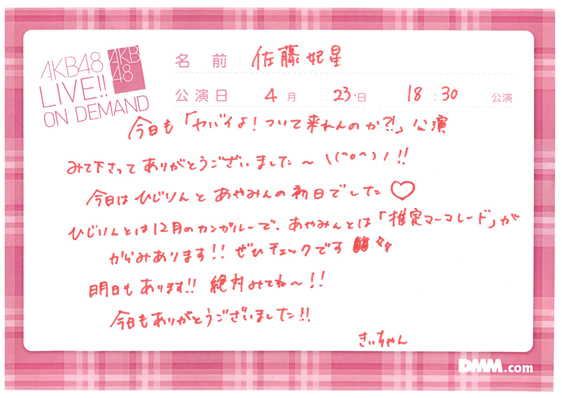 AKB48
LIVE!!
ON DEMAND
AKB
48
名前 佐藤妃星
公演日 4月 23日 18:30 公演
今日も「ヤバイよ!ついて来れんのか?!」公演
みて下さってありがとうございました〜 \(^o^)/!!
今日はひじりんとあやみんの初日でした♡
ひじりんとは12月のカンガルーで、あやみんとは「推定マーマレード」が
からみあります!! ぜひチェックです
明日もあります!! 絶対みてね〜!!
今日もありがとうございました!!
きぃちゃん
DMM.com